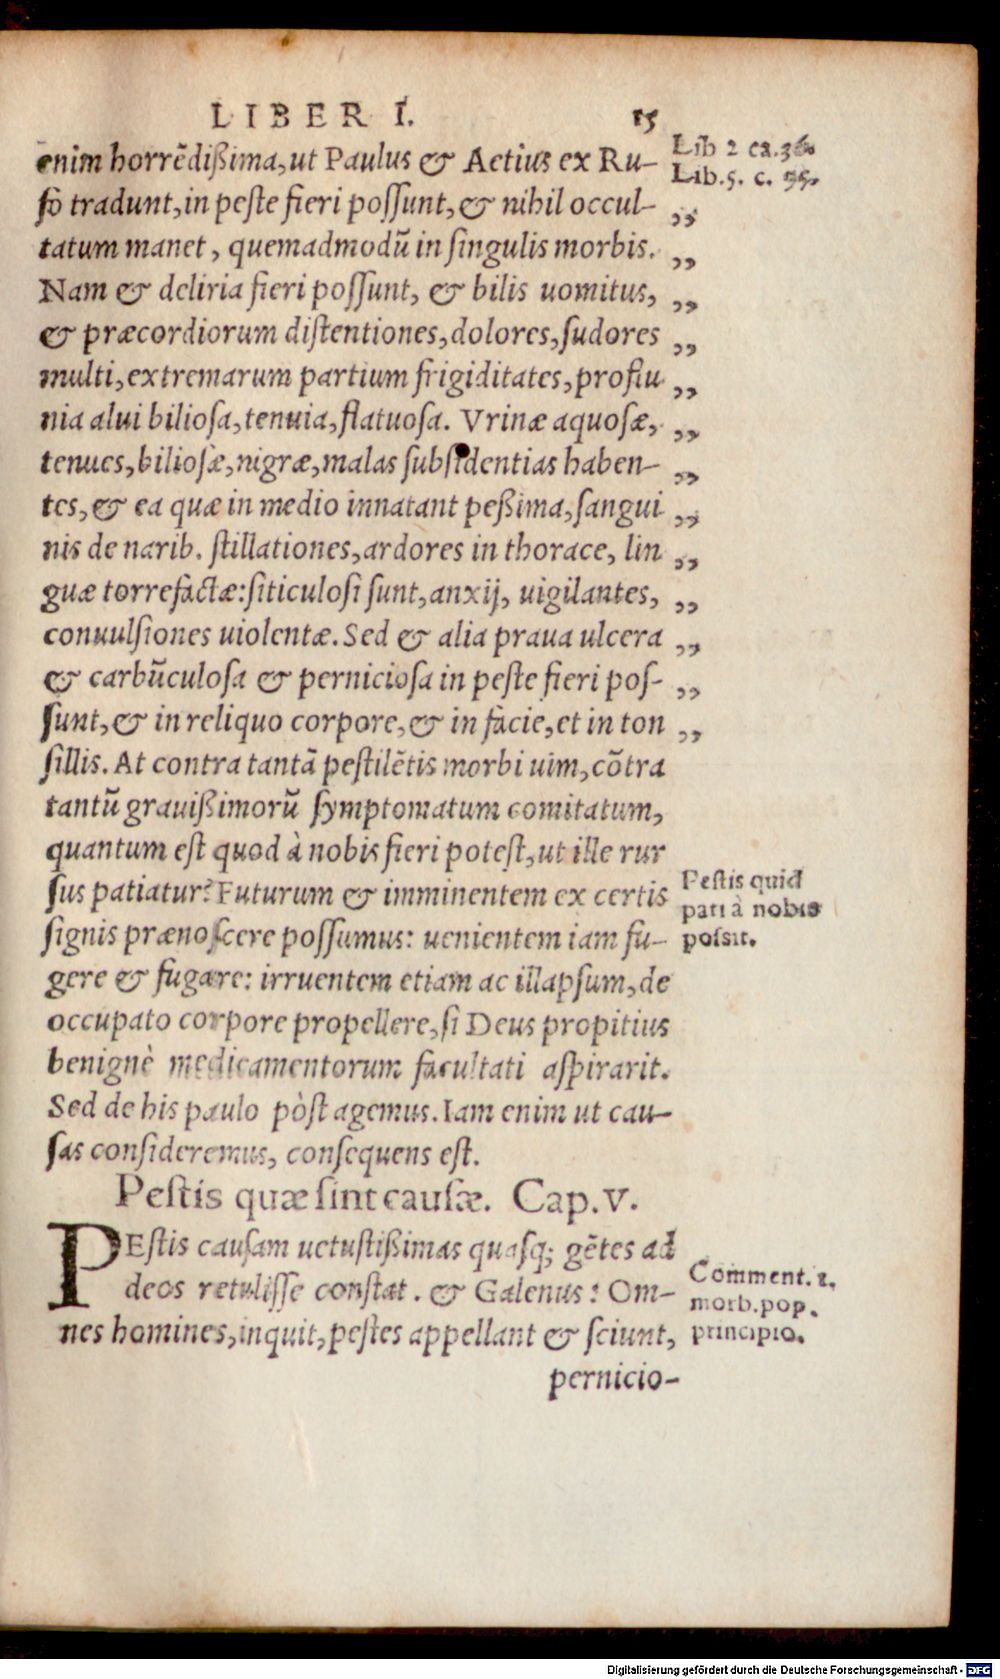 LIBER I. 15
enim horrẽdißima, ut Paulus & Aetius ex Ru-
fo tradunt, in peste fieri possunt, & nihil occul-
tatum manet, quemadmodũ in singulis morbis.
Nam & deliria fieri possunt, & bilis uomitus,
& præcordiorum distentiones, dolores, sudores
multi, extremarum partium frigiditates, profluuia
nia alui biliosa, tenuia, flatuosa. Vrinæ aquosæ,
tenues, biliosæ, nigræ, malas subsidentias haben-
tes, & ea quæ in medio innatant peßima, sangui
nis de narib. stillationes, ardores in thorace, lin
guæ torrefactæ: siticulosi sunt, anxij, uigilantes,
conuulsiones uiolentæ. Sed & alia praua ulcera
& carbũculosa & perniciosa in peste fieri pos-
sunt, & in reliquo corpore, & in facie, et in ton
sillis. At contra tantã pestilẽtis morbi uim, cõtra
tantũ grauißimorũ symptomatum comitatum,
quantum est quod à nobis fieri potest, ut ille rur
sus patiatur? Futurum & imminentem ex certis
signis prænoscere possumus: uenientem iam fu-
gere & fugare: irruentem etiam ac illapsum, de
occupato corpore propellere, si Deus propitius
benignè medicamentorum facultati aspirarit.
Sed de his paulo pòst agemus. Iam enim ut cau-
sas consideremus, consequens est.
Pestis quæ sint causæ. Cap. V.
PEstis causam uetustißimas quasq; gẽtes ad
deos retulisse constat. & Galenus: Om-
nes homines, inquit, pestes appellant & sciunt,
pernicio-
Lib 2 ca. 36.
Lib. 5. c. 95.
,,
,,
,,
,,
,,
,,
,,
,,
,,
,,
,,
,,
,,
Pestis quid
pati à nobis
possit.
Comment. 1.
morb. pop.
principio.
Digitalisierung gefördert durch die Deutsche Forschungsgemeinschaft - DFG